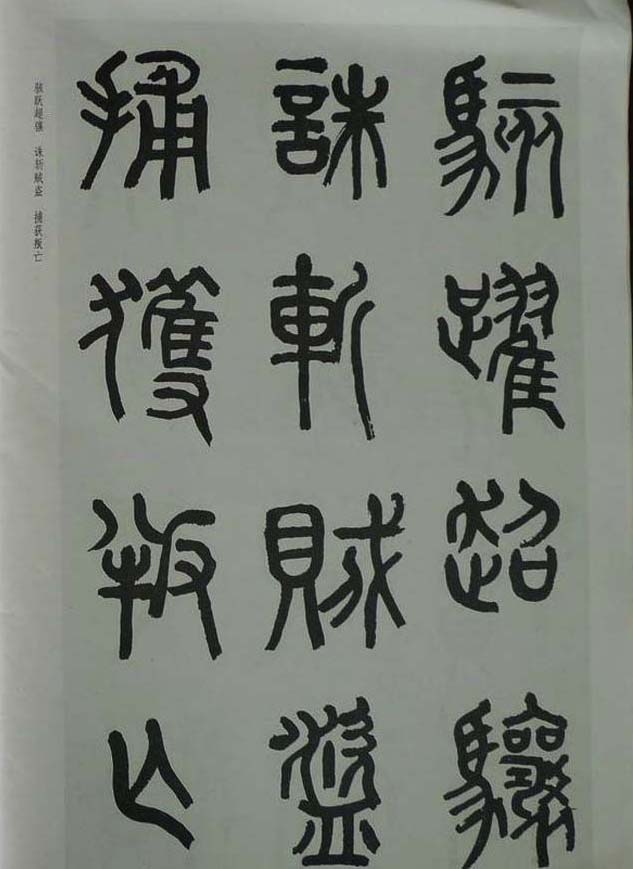 駭躍超驤
誅斬賊盜
捕獲叛亡
骇跃超骧 诛斩贼盗 捕获叛亡